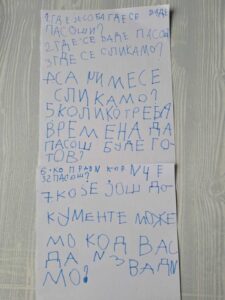 1 ГДЕ ЈЕ СОБА ГДЕ СЕ ВАДЕ
ПАСОШИ?
2 ГДЕ СЕ ВАДЕ ПАСОШ
3 ГДЕ СЕ СЛИКАМО?
4 СА ЧИМЕ СЕ
СЛИКАМО?
5 КОЛИКО ТРЕБА
ВРЕМЕНА ДА
ПАСОШ БУДЕ ГО-
ТОВ?
6 КО ПРАВИ
ПАСОШ?
7 КОЈЕ ЈОШ ДО-
КУМЕНТЕ МОЖЕ
МО КОД ВАС
ДА ИЗВАДИ
МО?